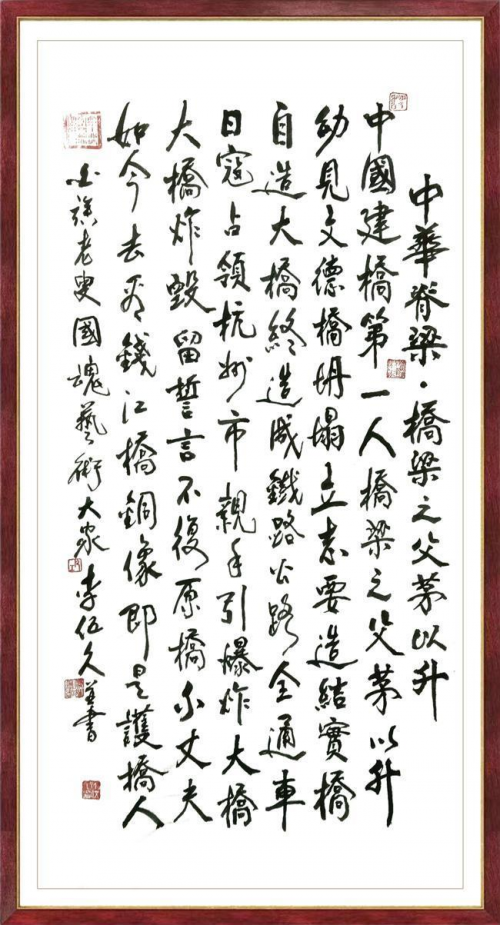 中華脊梁·橋梁之父茅以升
中國建橋第一人橋梁之父茅以升
幼見文德橋坍塌立志要造結實橋
自造大橋終造成鐵路公路全通車
日寇占領杭州市親手引爆炸大橋
大橋炸毀留誓言不復原橋不丈夫
如今去看錢江橋銅像即是護橋人
老叟國魂藝術大家李伍久並書